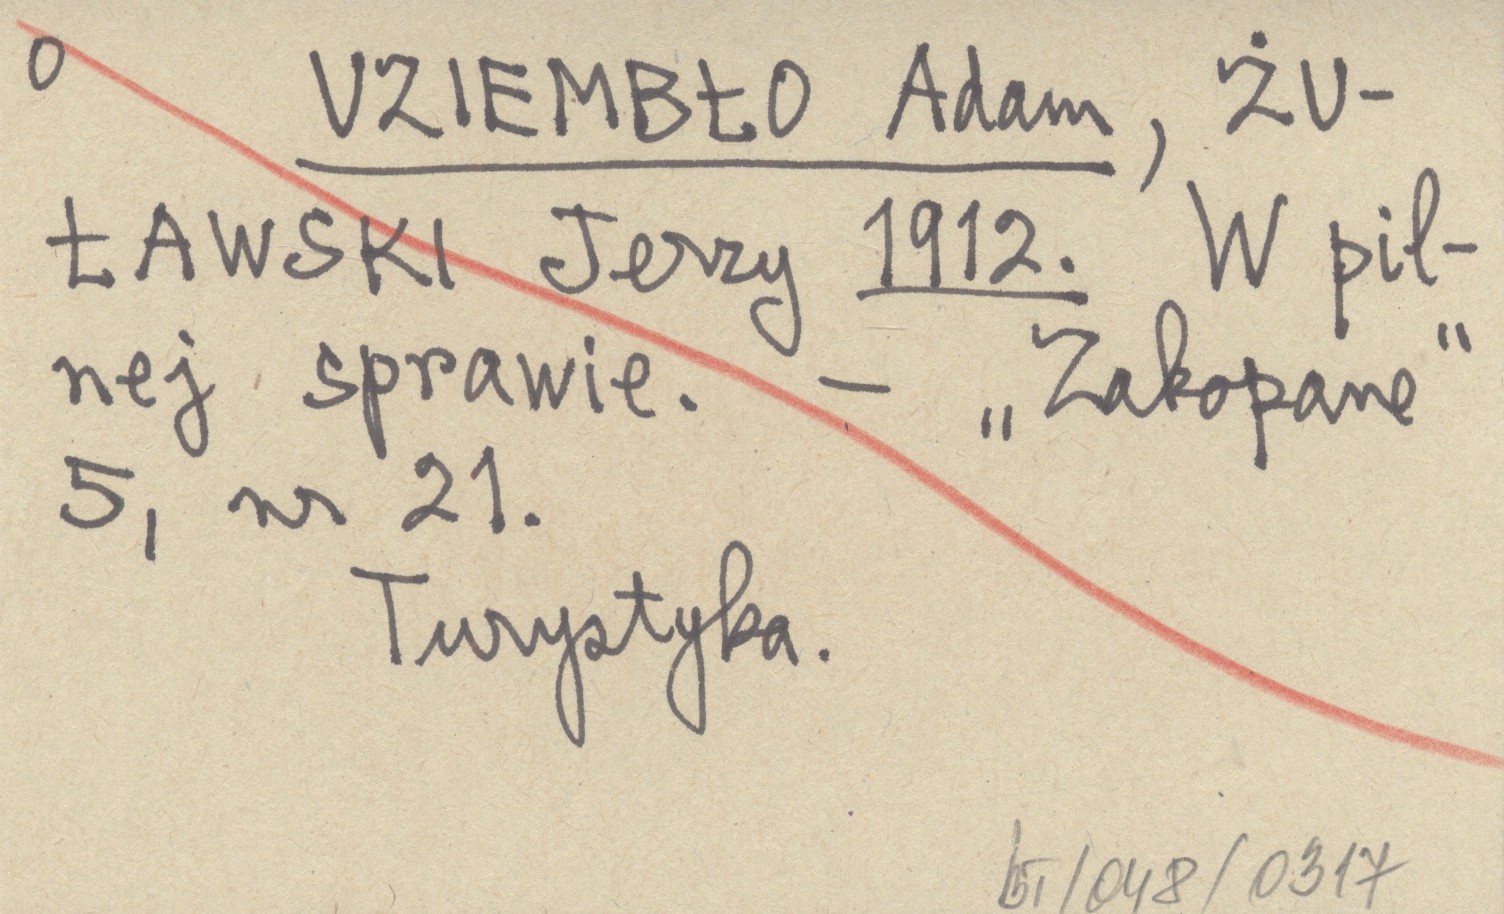 O
UZIEMBŁO Adam, ŻU-
ŁAWSKI Jerzy 1912. W pil-
nej sprawie. — „Zakopane“
5, nr 21.
Turystyka.
/048/0317